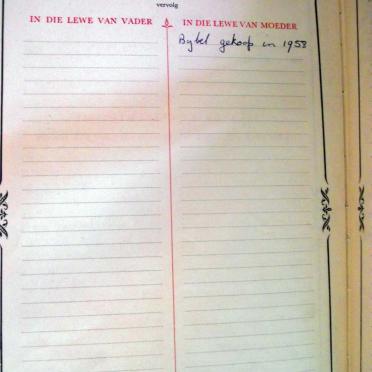 vervolg
IN DIE LEWE VAN VADER
IN DIE LEWE VAN MOEDER
Bybel gekoop in 1958